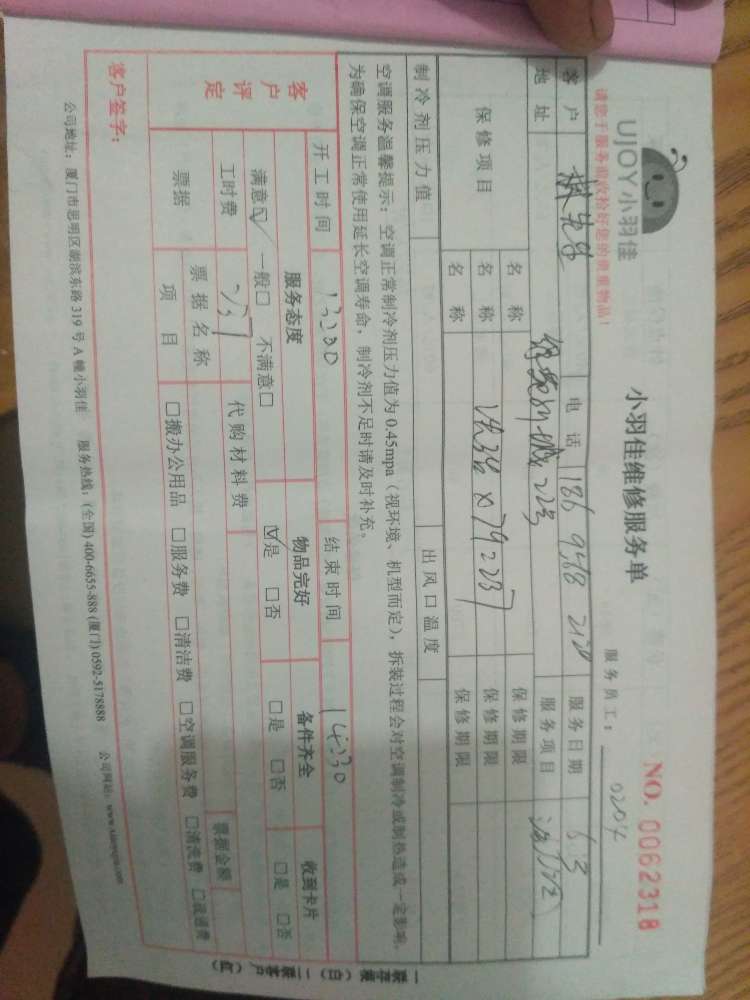 UJOY小羽佳
小羽佳维修服务单
NO. 0062318
请您于服务前收检好您的贵重物品!
服务员工: 0204
客户 电话 186 9588 2120 服务日期
地址 服务项目
保修项目 名称 保修期限
名称 保修期限
名称 保修期限
制冷剂压力值 出风口温度
空调服务温馨提示:空调正常制冷剂压力值为0.45mpa(视环境、机型而定),拆装过程会对空调制冷或制热造成一定影响,
为确保空调正常使用延长空调寿命,制冷剂不足时请及时补充。
开工时间 13:30 结束时间 14:30
客户评定 服务态度 物品完好 备件齐全 收到卡片
满意☑ 一般□ 不满意□ ☑是 □否 □是 □否 □是 □否
工时费 代购材料费
票据 票据名称 票据金额
项目 □搬办公用品 □服务费 □清洁费 □空调服务费 □清洗费 □疏通费
客户签字:
公司地址:厦门市思明区湖滨东路319号A幢小羽佳 服务热线:(全国)400-6655-888 (厦门)0592-5178888 公司网站:www.xiaoyujia.com
一联存根(白) 二联客户(红)